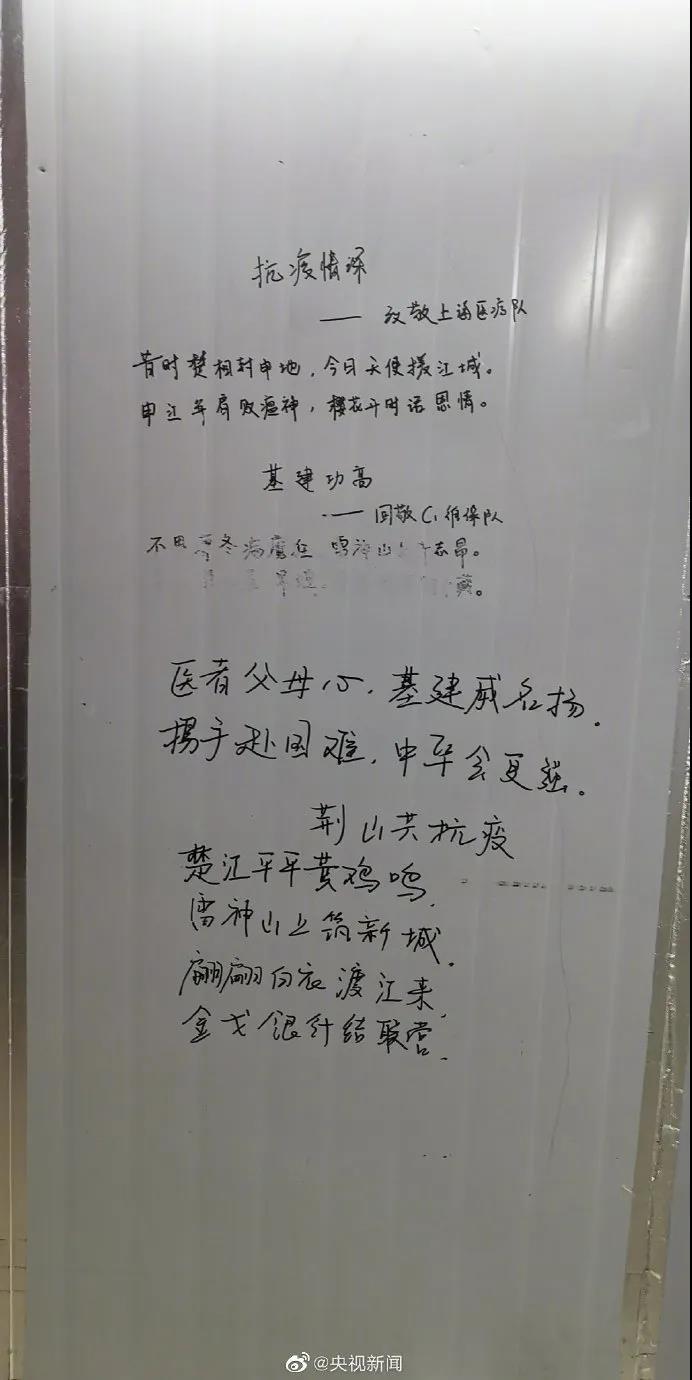 抗疫情深
—— 致敬上海医疗队
昔时楚相封申地，今日天使援江城。
申江并肩败瘟神，樱花开时话恩情。
基建功高
—— 回敬C1维保队
不畏 冬病魔狂 雷神山 志昂。
医者父母心，基建威名扬。
携手赴国难，中华会更强。
荆山共抗疫
楚江平平黄鸡鸣，
雷神山上筑新城，
翩翩白衣渡江来，
金戈银针结联营，
@央视新闻